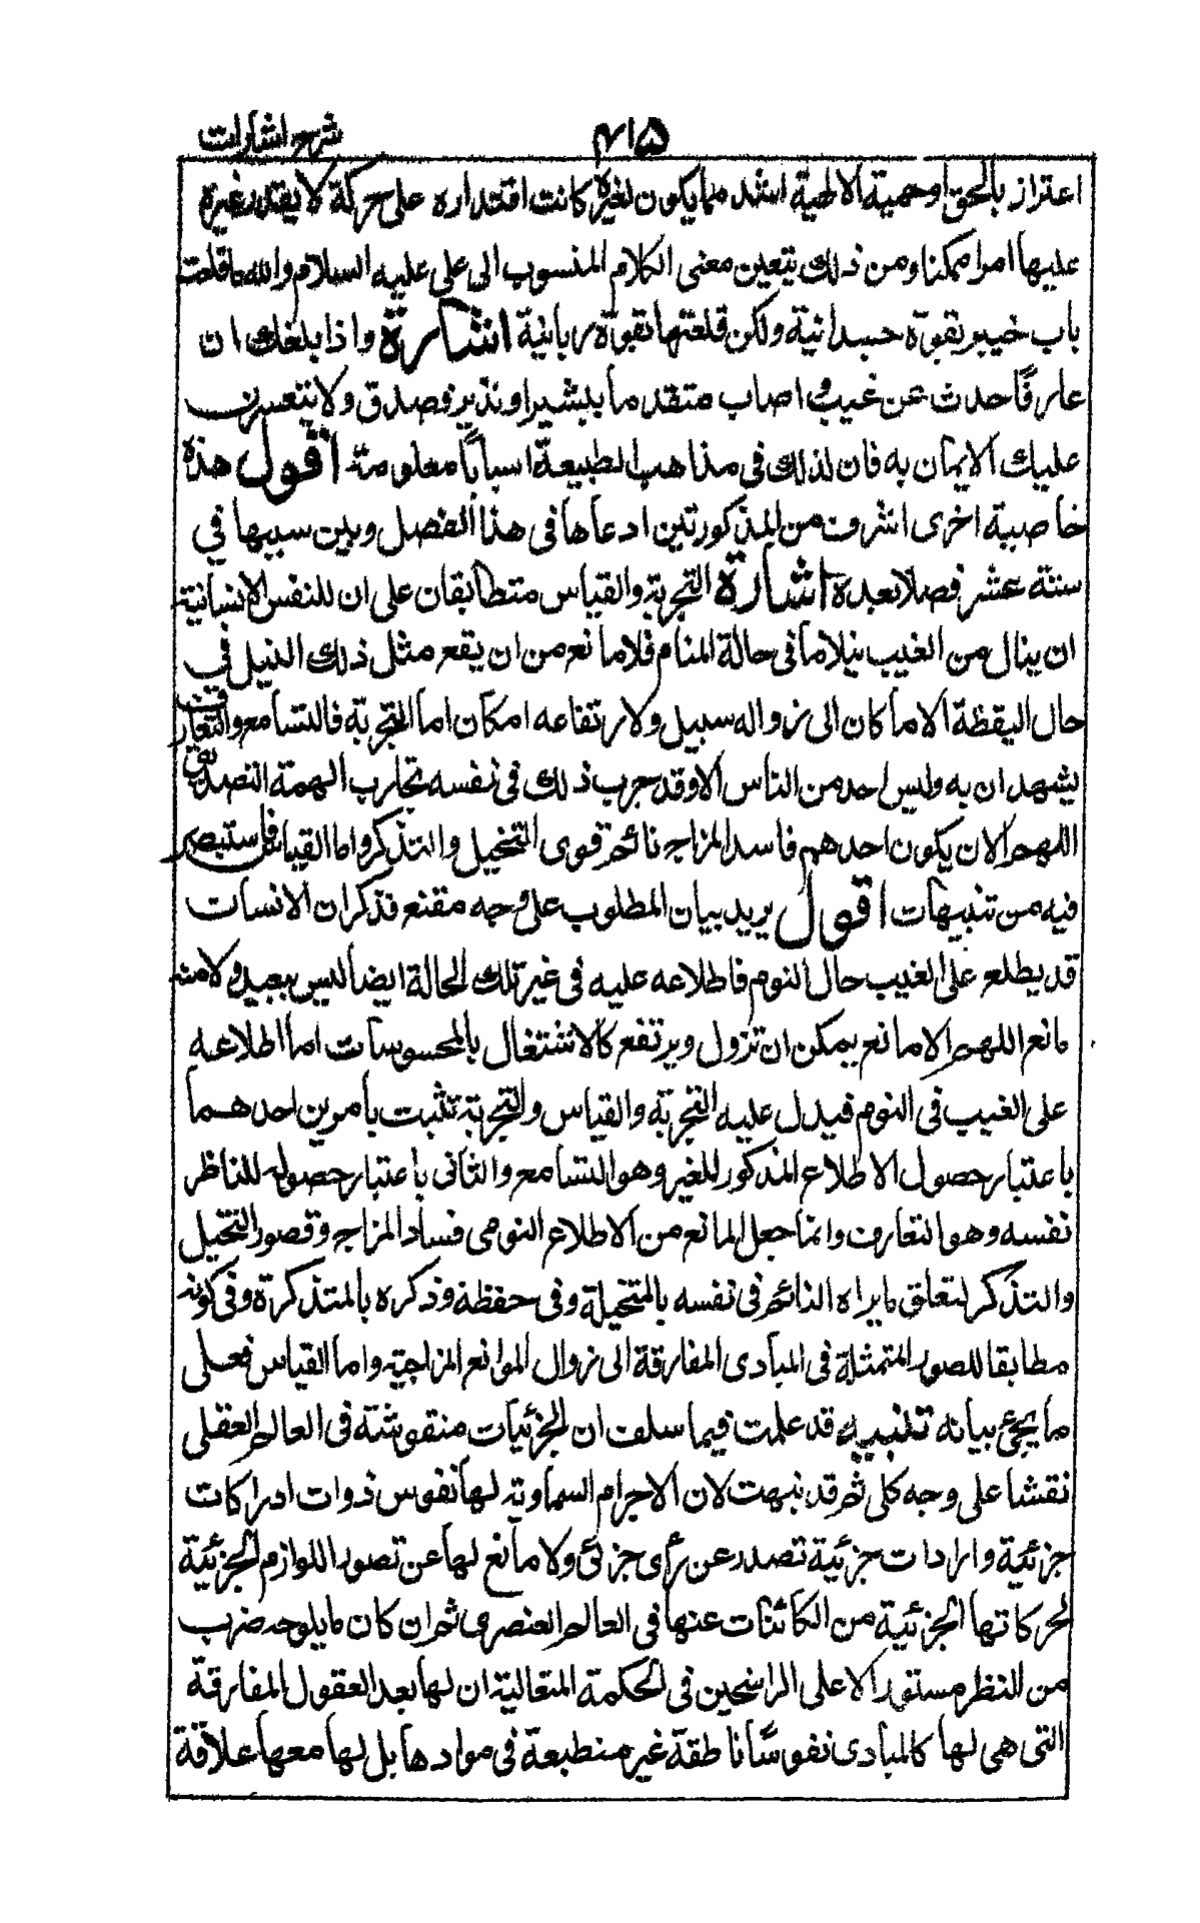 شرح اشارات
اعتزاز بالحق او حمية الالهية اشد مما يكون لغيره كانت اقتداره على حركة لا يقتدر غيره
عليها امرا ممكنا ومن ذلك يتعين معنى الكلام المنسوب الى على عليه السلام والله ما قلعت
باب خيبر بقوة جسدانية ولكن قلعتها بقوة ربانية اشارة واذا بلغك ان
عارفا حدث عن غيب و اصاب متقدما ببشير او نذير فصدق ولا يتعسرن
عليك الايمان به فان لذلك فى مذاهب الطبيعة اسبابا معلومة اقول هذه
خاصية اخرى اشرف من المذكورتين ادعاها فى هذا الفصل وبين سببها في
ستة عشر فصلا بعده اشارة التجربة والقياس متطابقان على ان للنفس الانسانية
ان ينال من الغيب نيلا ما فى حالة المنام فلا مانع من ان يقع مثل ذلك النيل في
حال اليقظة الا ما كان الى زواله سبيل ولارتفاعه امكان اما التجربة فالتسامع والتعارف
يشهدان به وليس احد من الناس الا وقد جرب ذلك فى نفسه تجارب الهمة التصديق
اللهم الا ان يكون احدهم فاسد المزاج نائم قوى التخيل والتذكر واما القياس فاستبصر
فيه من تنبيهات اقول يريد بيان المطلوب على وجه مقنع فذكر ان الانسان
قد يطلع على الغيب حال النوم فاطلاعه عليه فى غير تلك الحالة ايضا ليس ببعيد ولا منه
مانع اللهم الا مانع يمكن ان تزول ويرتفع كالاشتغال بالمحسوسات اما اطلاعه
على الغيب فى النوم فيدل عليه التجربة والقياس والتجربة تثبت بامرين احدهما
باعتبار حصول الاطلاع المذكور للغير وهو التسامع والثانى باعتبار حصوله للناظر
نفسه وهو التعارف وانما جعل المانع من الاطلاع النومى فساد المزاج وقصور التخيل
والتذكر لتعلق ما يراه النائم فى نفسه بالمتخيلة وفى حفظه وذكره بالمتذكرة وفى كونه
مطابقا للصور المتمثلة فى المبادى المفارقة الى زوال الموانع المزاجية واما القياس فعلى
ما يجئ بيانه تنبيه قد علمت فيما سلف ان الجزئيات منقوشة فى العالم العقلى
نقشا على وجه كلى ثم قد نبهت لان الاجرام السماوية لها نفوس ذوات ادراكات
جزئية وارادات جزئية تصدر عن رأى جزئى ولا مانع لها عن تصور اللوازم الجزئية
لحركاتها الجزئية من الكائنات عنها فى العالم العنصرى ثم ان كان ما يلوحه ضرب
من النظر مستورا الا على الراسخين فى الحكمة المتعالية ان لها بعد العقول المفارقة
التى هى لها كالمبادى نفوسا ناطقة غير منطبعة فى موادها بل لها معها علاقة